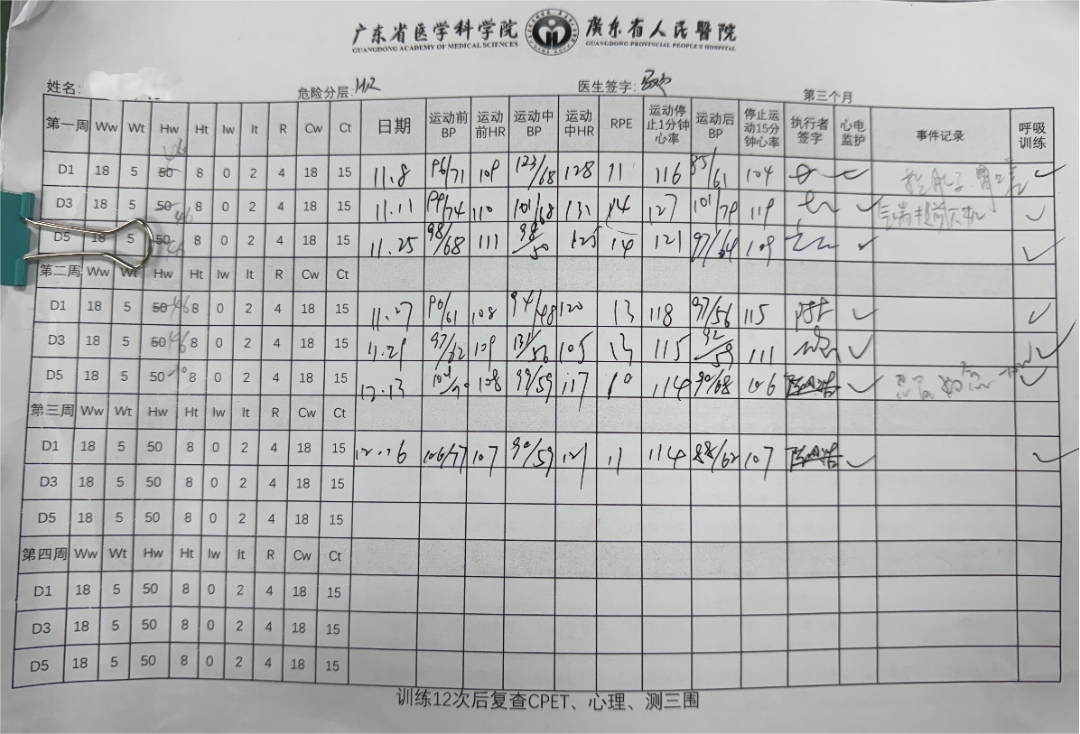 广东省医学科学院 廣东省人民醫院
GUANGDONG ACADEMY OF MEDICAL SCIENCES GUANGDONG PROVINCIAL PEOPLE'S HOSPITAL
姓名: 危险分层: 医生签字: 第三个月
第一周 Ww Wt Hw Ht Iw It R Cw Ct 日期 运动前BP 运动前HR 运动中BP 运动中HR RPE 运动停止1分钟心率 运动后BP 停止运动15分钟心率 执行者签字 心电监护 事件记录 呼吸训练
D1 18 5 50 46 8 0 2 4 18 15 11.8 96/71 109 123/68 128 11 116 85/61 104 ✓ ✓
D3 18 5 50 46 8 0 2 4 18 15 11.11 99/74 110 101/68 131 14 127 101/79 119 ✓ ✓
D5 18 5 50 46 8 0 2 4 18 15 11.25 98/68 111 98/50 125 14 121 97/64 109 ✓ ✓
第二周 Ww Wt Hw Ht Iw It R Cw Ct
D1 18 5 50 46 8 0 2 4 18 15 11.27 90/61 108 94/48 120 13 118 97/56 115 ✓ ✓
D3 18 5 50 46 8 0 2 4 18 15 11.29 97/62 109 131/56 105 13 115 92/59 111 ✓ ✓
D5 18 5 50 8 0 2 4 18 15 12.13 108 99/59 117 10 114 90/68 106 ✓ ✓
第三周 Ww Wt Hw Ht Iw It R Cw Ct
D1 18 5 50 8 0 2 4 18 15 12.16 106/77 107 90/59 121 11 114 88/62 107 ✓ ✓
D3 18 5 50 8 0 2 4 18 15
D5 18 5 50 8 0 2 4 18 15
第四周 Ww Wt Hw Ht Iw It R Cw Ct
D1 18 5 50 8 0 2 4 18 15
D3 18 5 50 8 0 2 4 18 15
D5 18 5 50 8 0 2 4 18 15
训练12次后复查CPET、心理、测三围